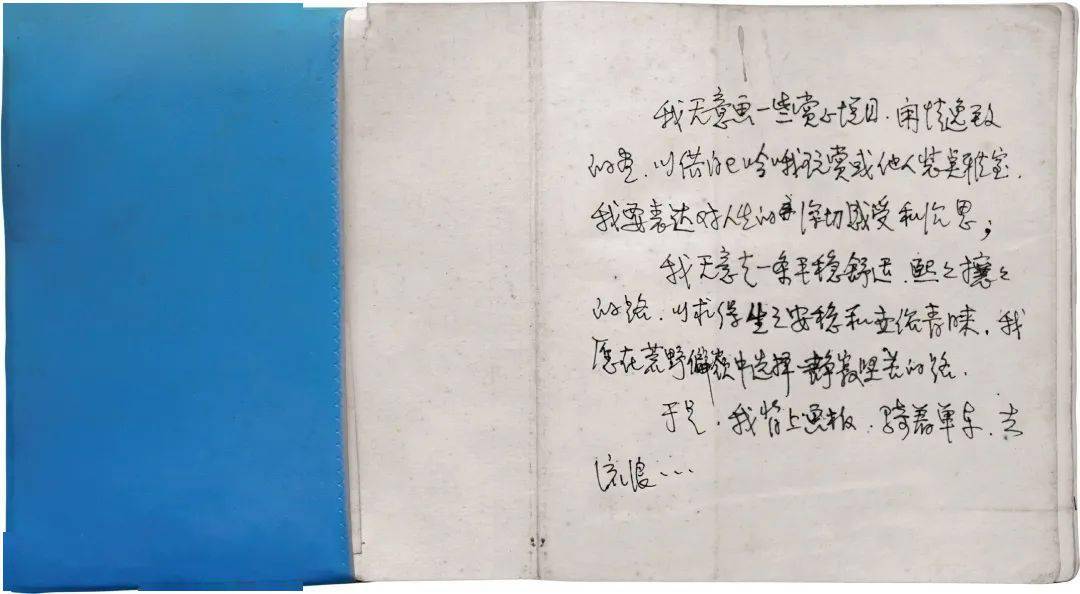 我无意画一些赏心悦目、闲情逸致
的画,以供自己吟哦玩赏或他人装点雅室,
我要表达对人生的深切感受和沉思;
我无意走一条平稳舒适、熙々攘々
的路,以求得生之安稳和世俗青睐,我
愿在荒野偏颇中选择一静寂坚苦的路。
于是,我背上画板、骑着单车、去
流浪…